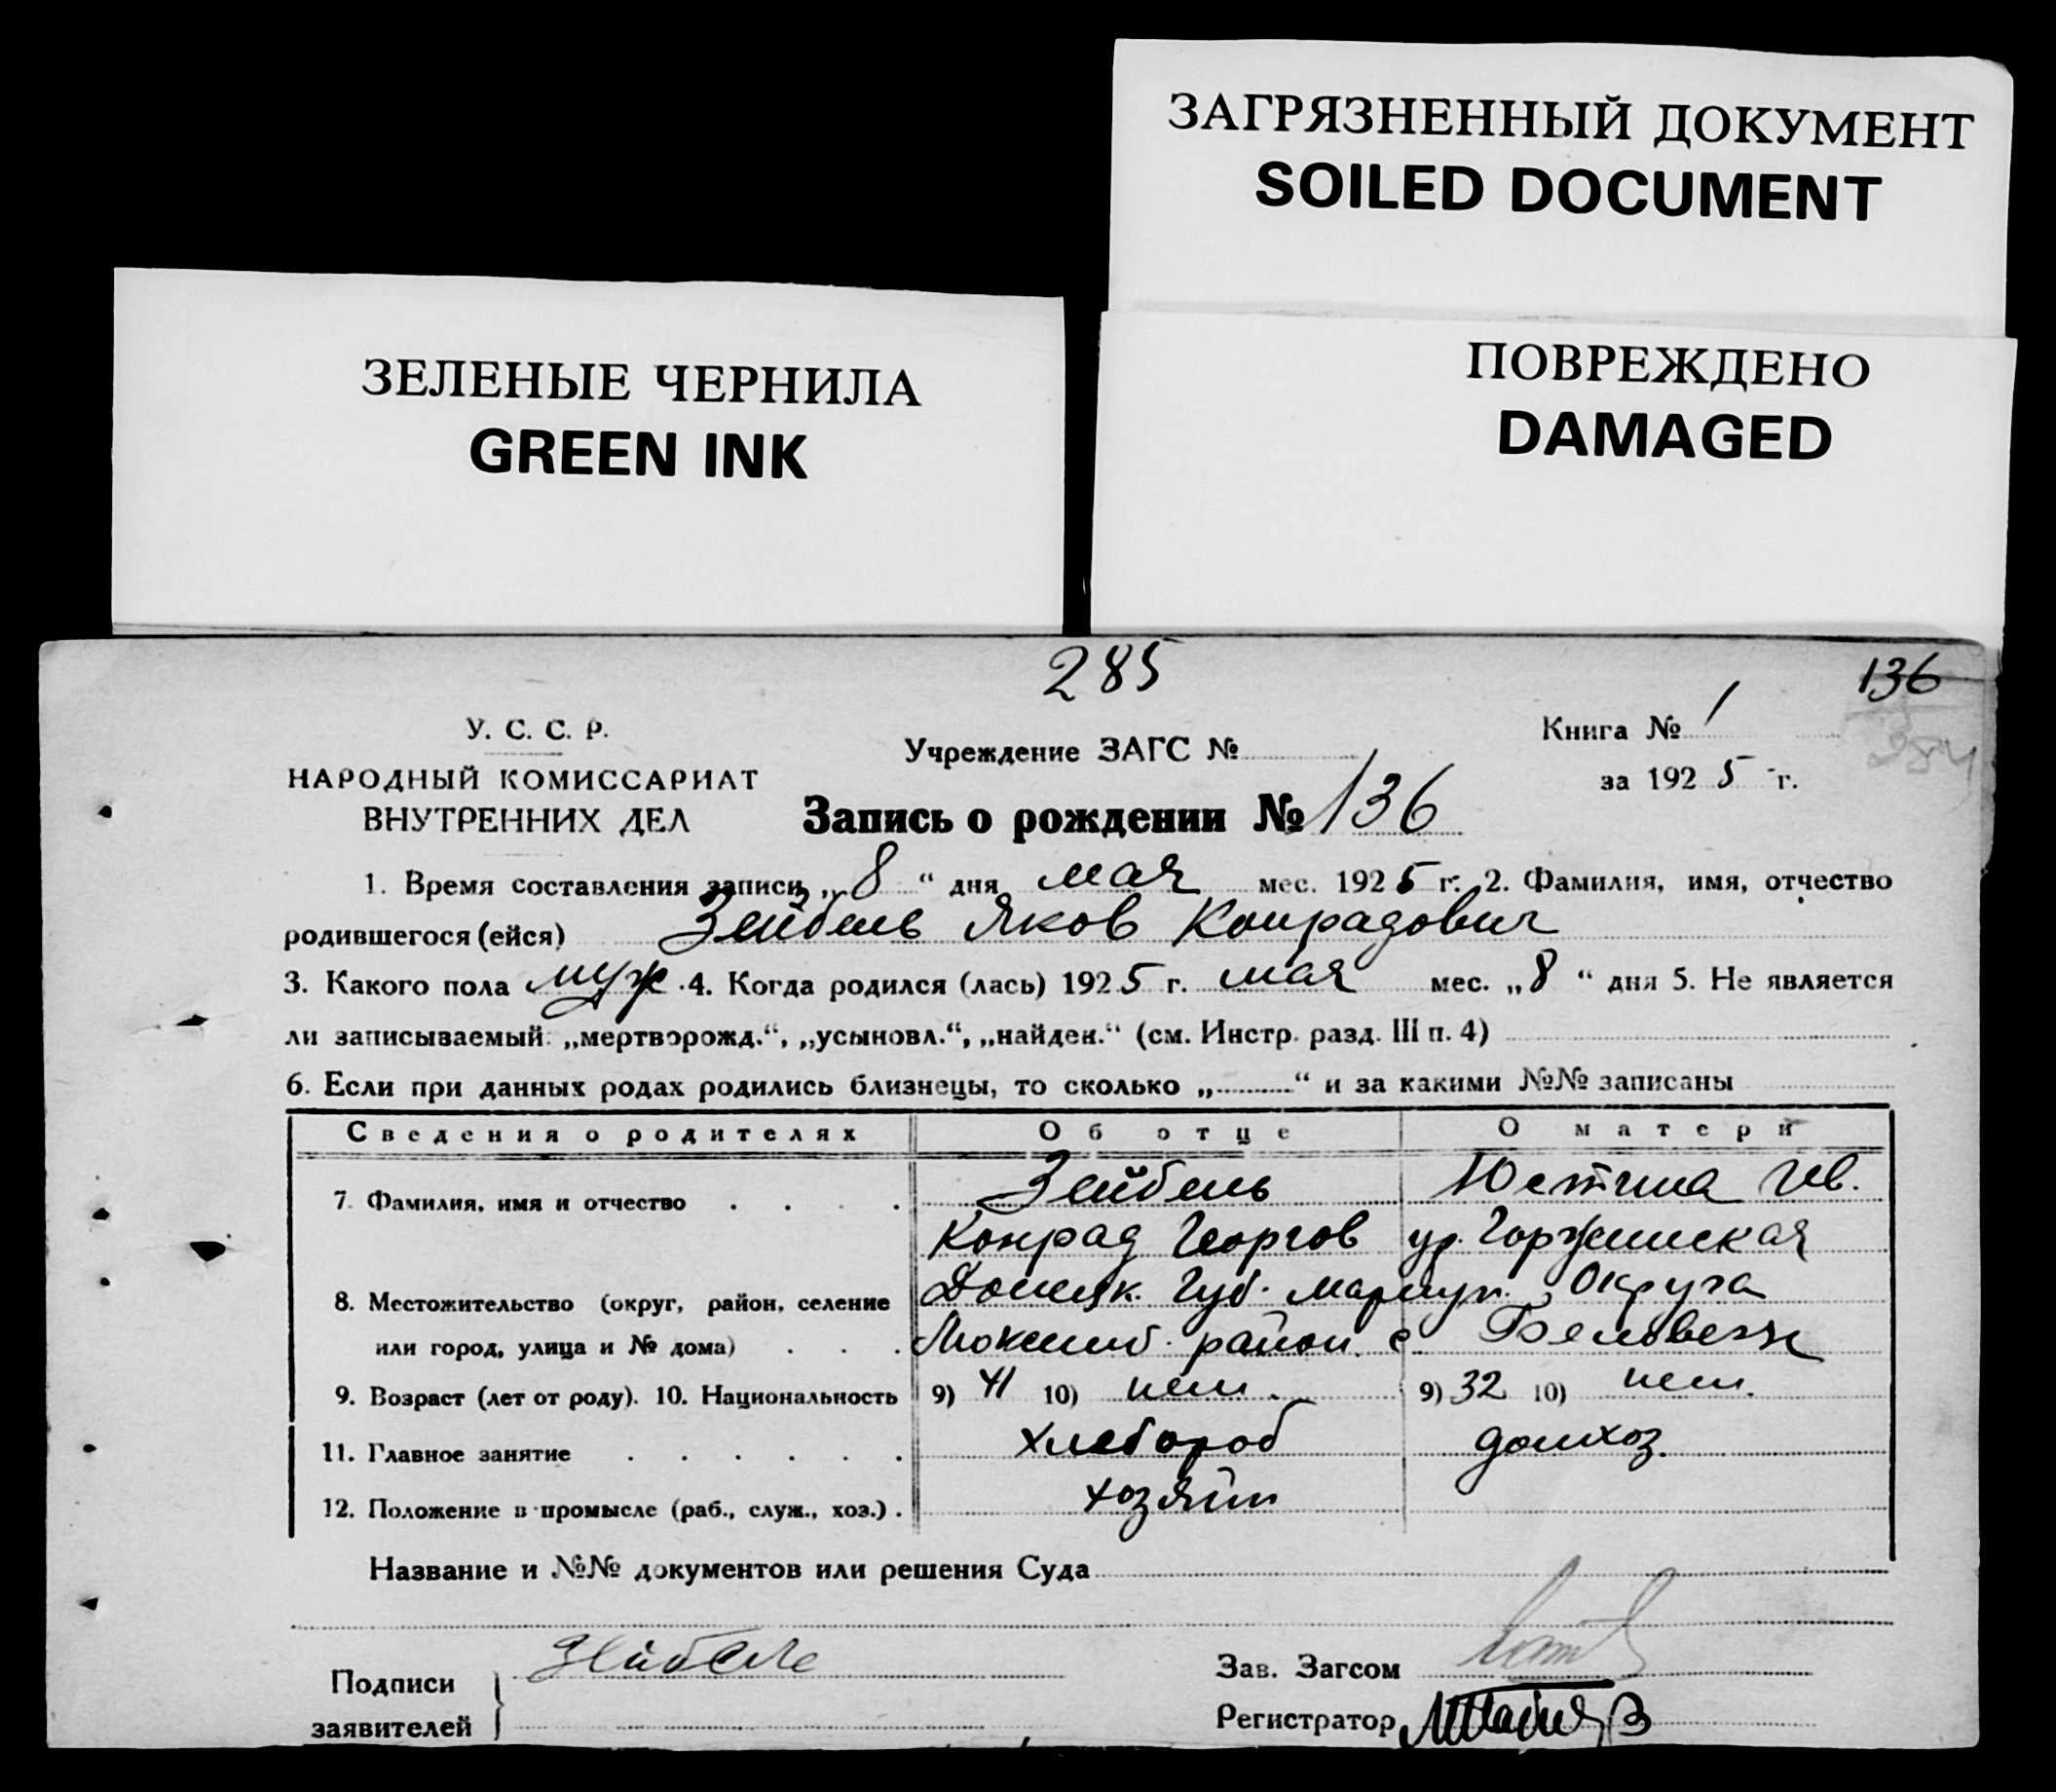 ЗАГРЯЗНЕННЫЙ ДОКУМЕНТ
SOILED DOCUMENT
ЗЕЛЕНЫЕ ЧЕРНИЛА
GREEN INK
ПОВРЕЖДЕНО
DAMAGED
285
136
У. С. С. Р.
НАРОДНЫЙ КОМИССАРИАТ
ВНУТРЕННИХ ДЕЛ
Учреждение ЗАГС №
Книга № 1
за 1925 г.
Запись о рождении № 136
1. Время составления записи „8“ дня мая мес. 1925 г. 2. Фамилия, имя, отчество
родившегося (ейся) Зейбель Яков Конрадович
3. Какого пола муж. 4. Когда родился (лась) 1925 г. мая мес. „8“ дня 5. Не является
ли записываемый: „мертворожд.“, „усыновл.“, „найден.“ (см. Инстр. разд. III п. 4)
6. Если при данных родах родились близнецы, то сколько „..........“ и за какими №№ записаны
Сведения о родителях Об отце О матери
7. Фамилия, имя и отчество Зейбель Юстина Ив.
Конрад Георгов ур.
8. Местожительство (округ, район, селение Донецк. Губ. Мариуп. Округа
или город, улица и № дома) район. с. Беловеж
9. Возраст (лет от роду). 10. Национальность 9) 41 10) нем. 9) 32 10) нем.
11. Главное занятие хлебороб домхоз.
12. Положение в промысле (раб., служ., хоз.) хозяин
Название и №№ документов или решения Суда
Подписи
заявителей
Зейбель
Зав. Загсом
Регистратор